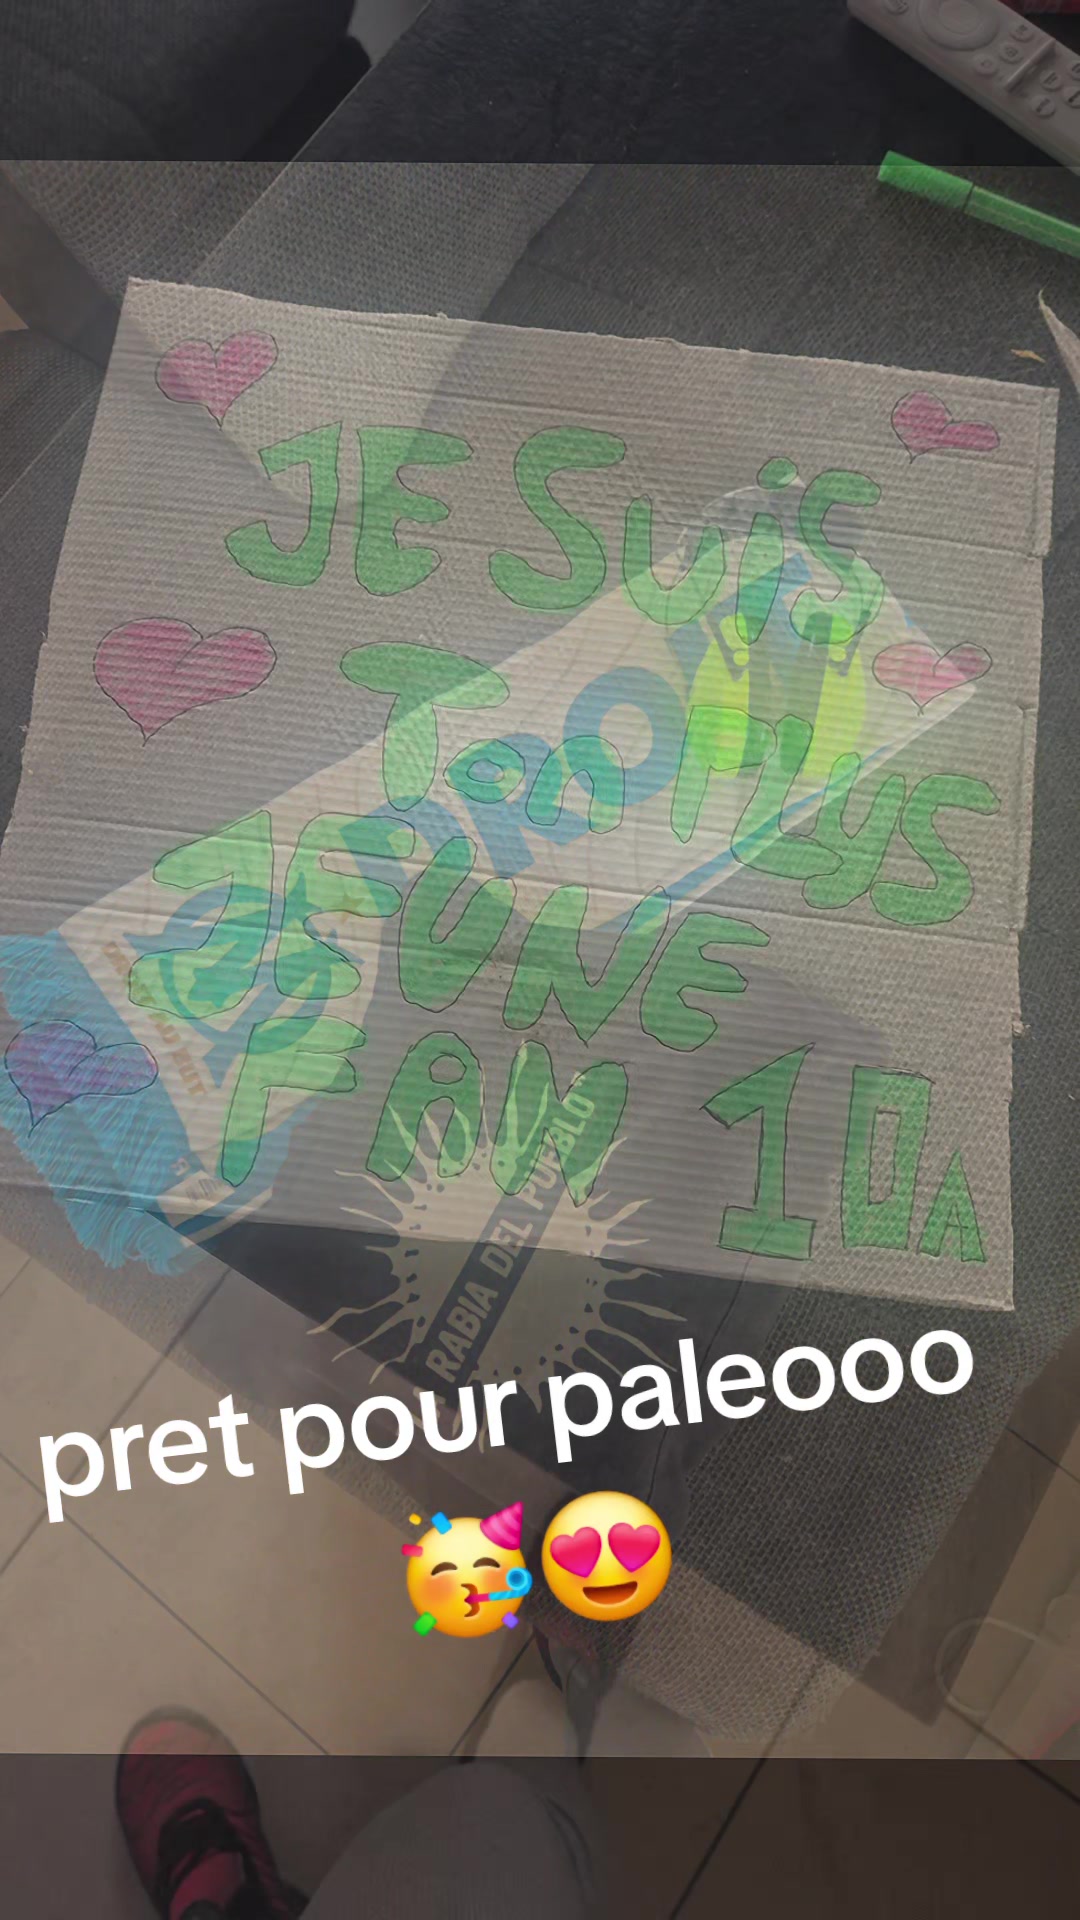 JE SUiS
Ton PLUS
JEUNE
FAN 10A
PRO
RABIA DEL PUEBLO
pret pour paleooo